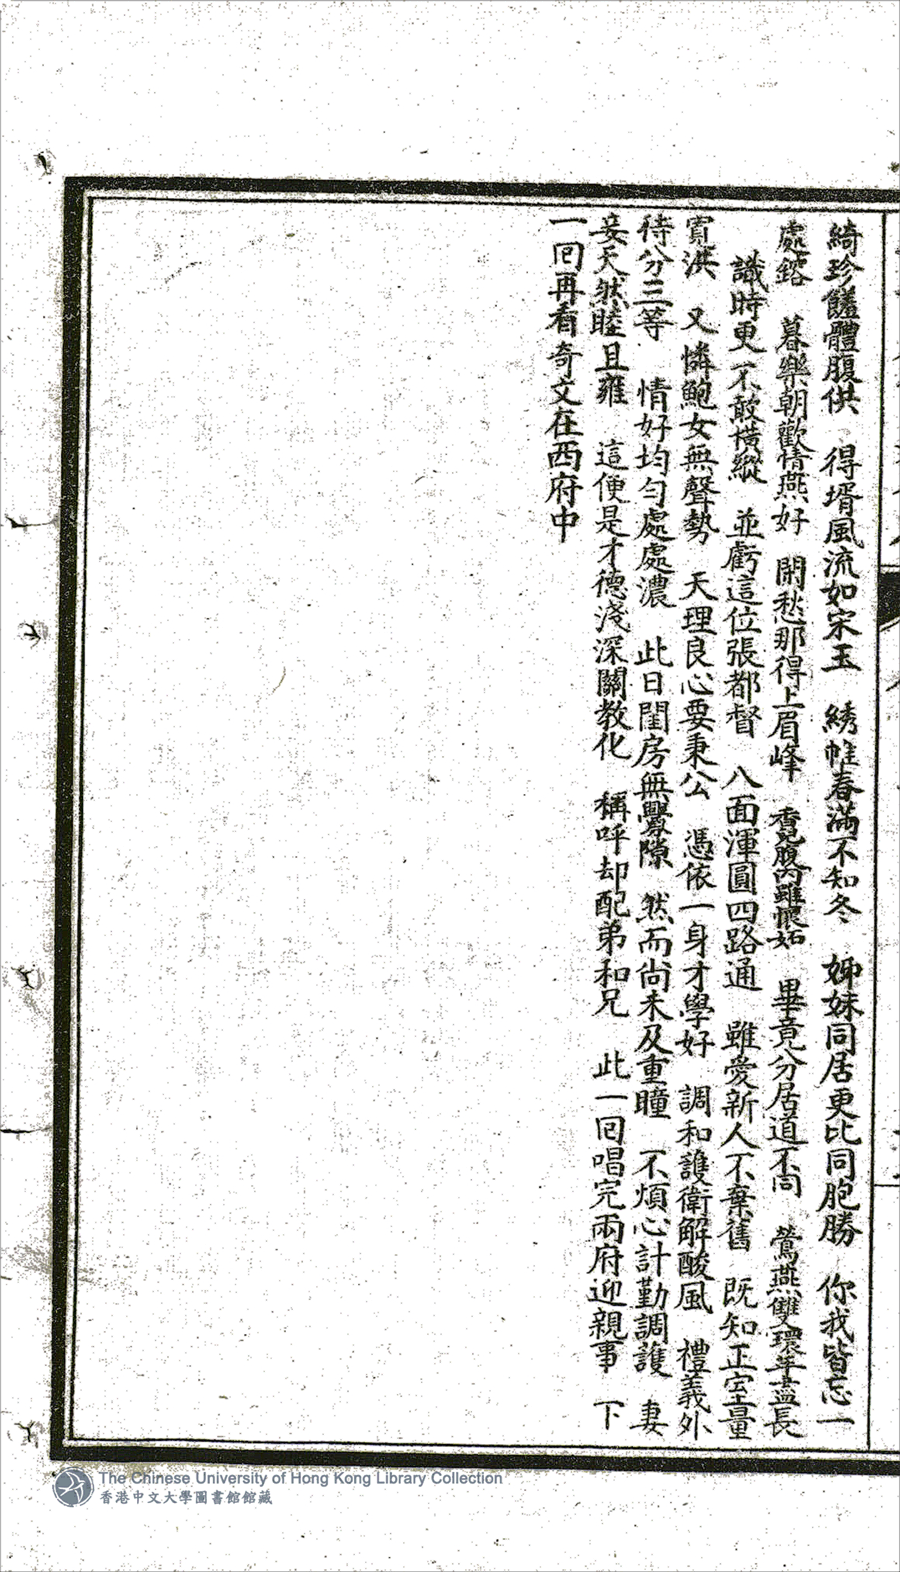 綺珍饈體腹供　得壻風流如宋玉　綉帷春滿不知冬　姊妹同居更比同胞勝　你我皆忘一
處鎔　暮樂朝歡情燕好　閒愁那得上眉峰　香兒腹內雖懷妬　畢竟分居道不同　鶯燕雙環年盡長
識時更不敢橫縱　並虧這位張都督　八面渾圓四路通　雖愛新人不棄舊　既知正室量
寬洪　又憐鮑女無聲勢　天理良心要秉公　憑依一身才學好　調和護衛解酸風　禮義外
待分三等　情好均勻處處濃　此日閨房無釁隙　然而尚未及重瞳　不煩心計勤調護　妻
妾天然睦且雍　這便是才德淺深關教化　稱呼却配弟和兄　此一囘唱完兩府迎親事　下
一囘再看奇文在西府中
The Chinese University of Hong Kong Library Collection
香港中文大學圖書館館藏